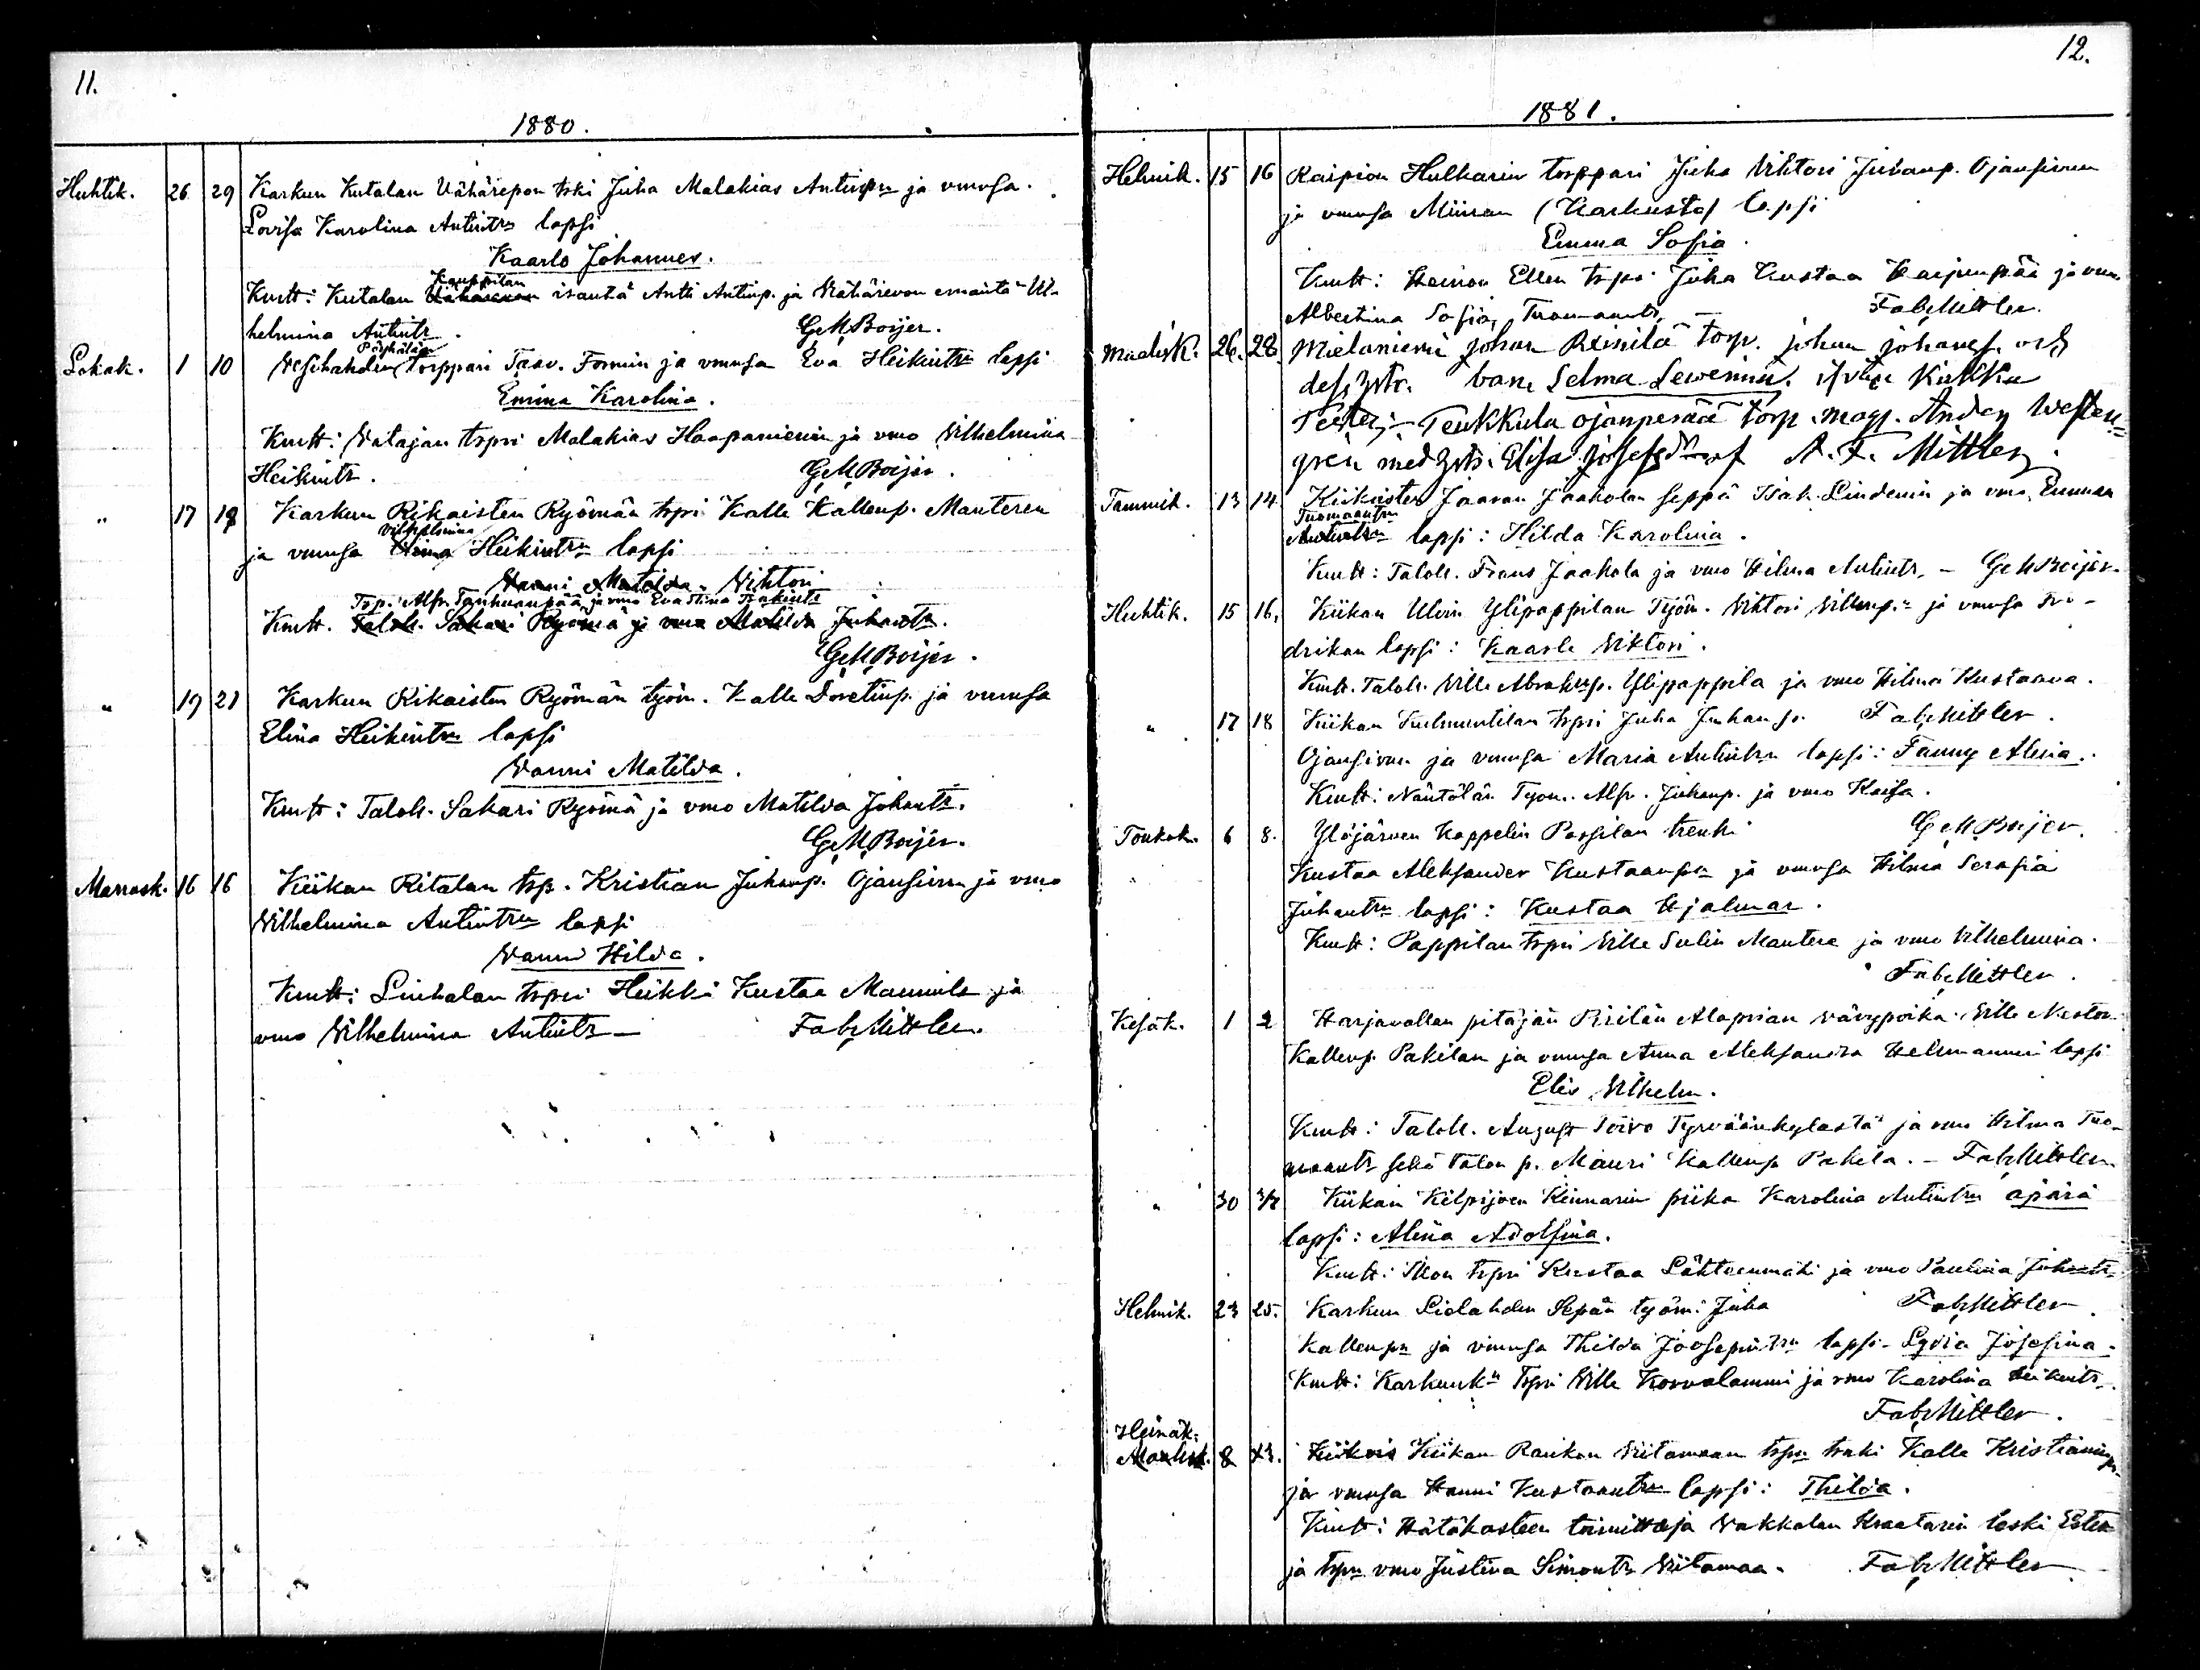 11.
1880.
Huhtik. 26 29 Karkun Kutalan Vähärepon trki Juha Malakias Antinpn ja vmonsa
Lovisa Karolina Antintrn lapsi
Kaarlo Johannes.
Kauppilan
Kmtt: Kutalan isäntä Antti Antinp. ja Vähärevon emäntä Vil-
helmina Antintr. G. M. Boijer.
Pöyhölän
Lokak. 1 10 Vesilahden torppari Taav. Formin ja vmonsa Eva Heikintrn lapsi
Emma Karolina.
Kmtt: Vatajan trpri Malakias Haapaniemi ja vmo Vilhelmina
Heikintr. G. M. Boijer.
" 17 19 Karkun Rikaisten Ryömän trpri Kalle Kallenp. Manteren
Vilhelmina
ja vmonsa Heikintrn lapsi
Vanni Matilda Vihtori
Trp. Alfr. Tanhuanpää ja vmo Eva Stina Isakintr
Kmtt. Taloll. Sakari Ryömä ja vmo Matilda Juhantr.
G. M. Boijer.
" 19 21 Karkun Rikaisten Ryömän työm. Kalle Loretinp. ja vmonsa
Elina Heikintrn lapsi
Vanni Matilda.
Kmtt: Taloll. Sakari Ryömä ja vmo Matilda Johantr.
G. M. Boijer.
Marrask. 16 16 Kiikan Ritalan trp. Kristian Juhanp. Ojansivun ja vmo
Vilhelmina Antintrn lapsi
Vanni Hilda.
Kmtt: Liuhalan trpri Heikki Kustaa Mannila ja
vmo Vilhelmina Antintr - Fab. Mittler.
12.
1881.
Helmik. 15 16 Kaipion Hulkarin torppari Juha Vihtori Juhanp. Ojansivun
ja vmonsa Miinan (Karkusta) lapsi
Emma Sofia.
Kmtt: Heinon Ellen trpri Juha Kustaa Harjunpää ja vmo
Albertina Sofia Tuomaantr. Fab. Mittler.
Maalisk. 26. 28. Mielaniemi Johan Reinilä torp. johan johansf. och
des hstr. barn Selma Lewernia. Kukku
Peeter - Teukkula ojanperää torp. mag. Anders Westen=
gren med hstr. Elisa josefsdr af A. F. Mittler.
Tammik. 13 14 Kiikoisten Jaaran Jaakolan seppä Isak Lindenin ja vmo Emman
Tuomaantrn
Antintrn lapsi: Hilda Karolina.
Kmtt: Taloll. Frans Jaakola ja vmo Hilma Antintr. - G. M. Boijer.
Huhtik. 15 16. Kiikan Ulvin Ylipappilan Työm. Vihtori Villenp.n ja vmonsa Fre-
drikan lapsi: Kaarle Viktori.
Kmtt. Taloll. Ville Abrahp. Ylipappila ja vmo Hilma Kustaava.
" 17 18 Kiikan Kulmuntilan trpri Juha Juhanp. Fab. Mittler.
Ojansivun ja vmonsa Maria Antintrn lapsi: Fanny Alina.
Kmtt: Näntölän Työm. Alfr. Juhanp. ja vmo Kaisa.
Toukok. 6 8. Ylöjärven Kappelin Passilan trenki G. M. Boijer.
Kustaa Aleksander Kustaanpn ja vmonsa Hilma Serafia
Juhantrn lapsi: Kustaa Hjalmar.
Kmtt: Pappilan trpri Ville Sulin Mantere ja vmo Vilhelmina.
Fab. Mittler.
Kesäk. 1 2 Harjavallan pitäjän Pirilän Alaprian vävypoika Ville Nestor
Kallenp. Pakilan ja vmonsa Anna Aleksandra Helmannin lapsi
Elis Vilhelm.
Kmtt: Taloll. August Toivo Tyrväänkylästä ja vmo Hilma Tuo-
maantr sekä talon p. Mauri Kallenp. Pakila. - Fab. Mittler.
" 30 3/7 Kiikan Kilpijoen Kinnarin piika Karolina Antintrn äpärä
lapsi: Alina Adolfina.
Kmtt: Illon trpri Kustaa Lähteenmäki ja vmo Paulina Juhantr.
Helmik. 23 25. Karkun Liolahden Sepän työm: Juha Fab. Mittler.
Kallenpn ja vmonsa Thilda Joosepintrn lapsi - Lydia Josefina.
Kmtt: Karkunkn trpri Ville Korvalammi ja vmo Karolina Heikintr.
Fab. Mittler.
Heinäk.
Maalisk. 8 13. Kiikois Kiikan Raukon Viitamaan trpn trnki Kalle Kristianinp.
ja vmonsa Hanni Kustaantrn lapsi: Thilda.
Kmtt: Hätäkasteen toimittaja Vakkalan Kraatarin leski Ester
ja trpn vmo Justina Simontr Viitamaa. Fab. Mittler